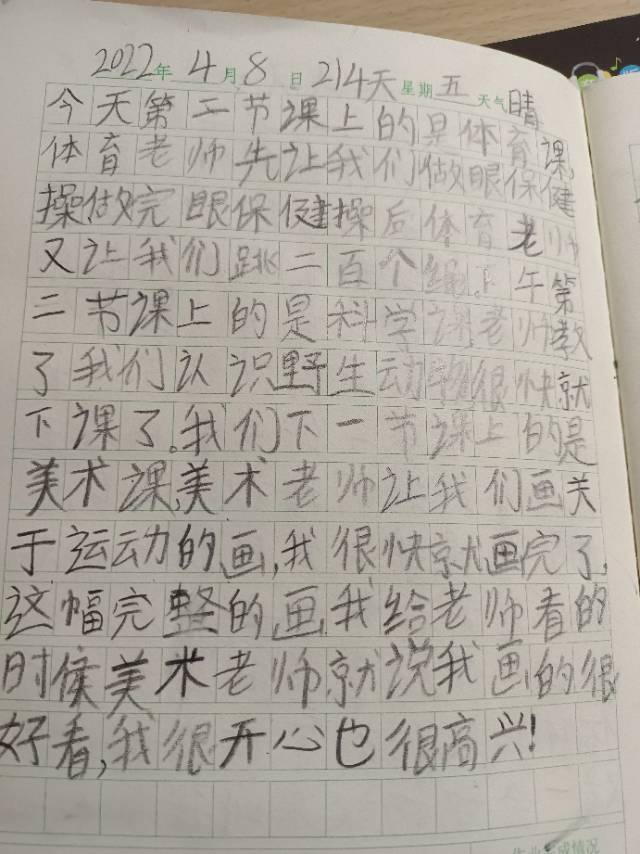 2022年 4月8日 214天 星期五 天气晴
今天第二节课上的是体育课,
体育老师先让我们做眼保健
操做完眼保健操后体育老师
又让我们跳二百个绳。下午第
二节课上的是科学课老师教
了我们认识野生动物很快就
下课了。我们下一节课上的是
美术课,美术老师让我们画关
于运动的画,我很快就画完了,
这幅完整的画我给老师看的
时候美术老师就说我画的很
好看,我很开心也很高兴!